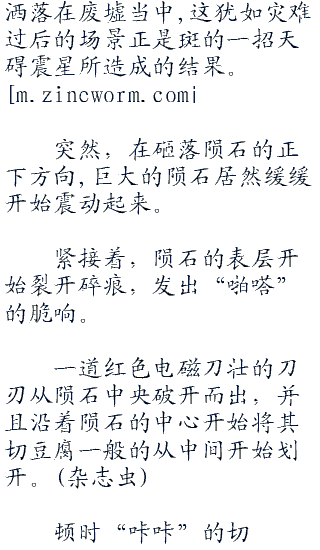 洒落在废墟当中,这犹如灾难
过后的场景正是斑的一招天
碍震星所造成的结果。
[m.zincworm.com]
突然，在砸落陨石的正
下方向,巨大的陨石居然缓缓
开始震动起来。
紧接着，陨石的表层开
始裂开碎痕，发出“啪嗒”
的脆响。
一道红色电磁刀壮的刀
刃从陨石中央破开而出，并
且沿着陨石的中心开始将其
切豆腐一般的从中间开始划
开。(杂志虫)
顿时“咔咔”的切